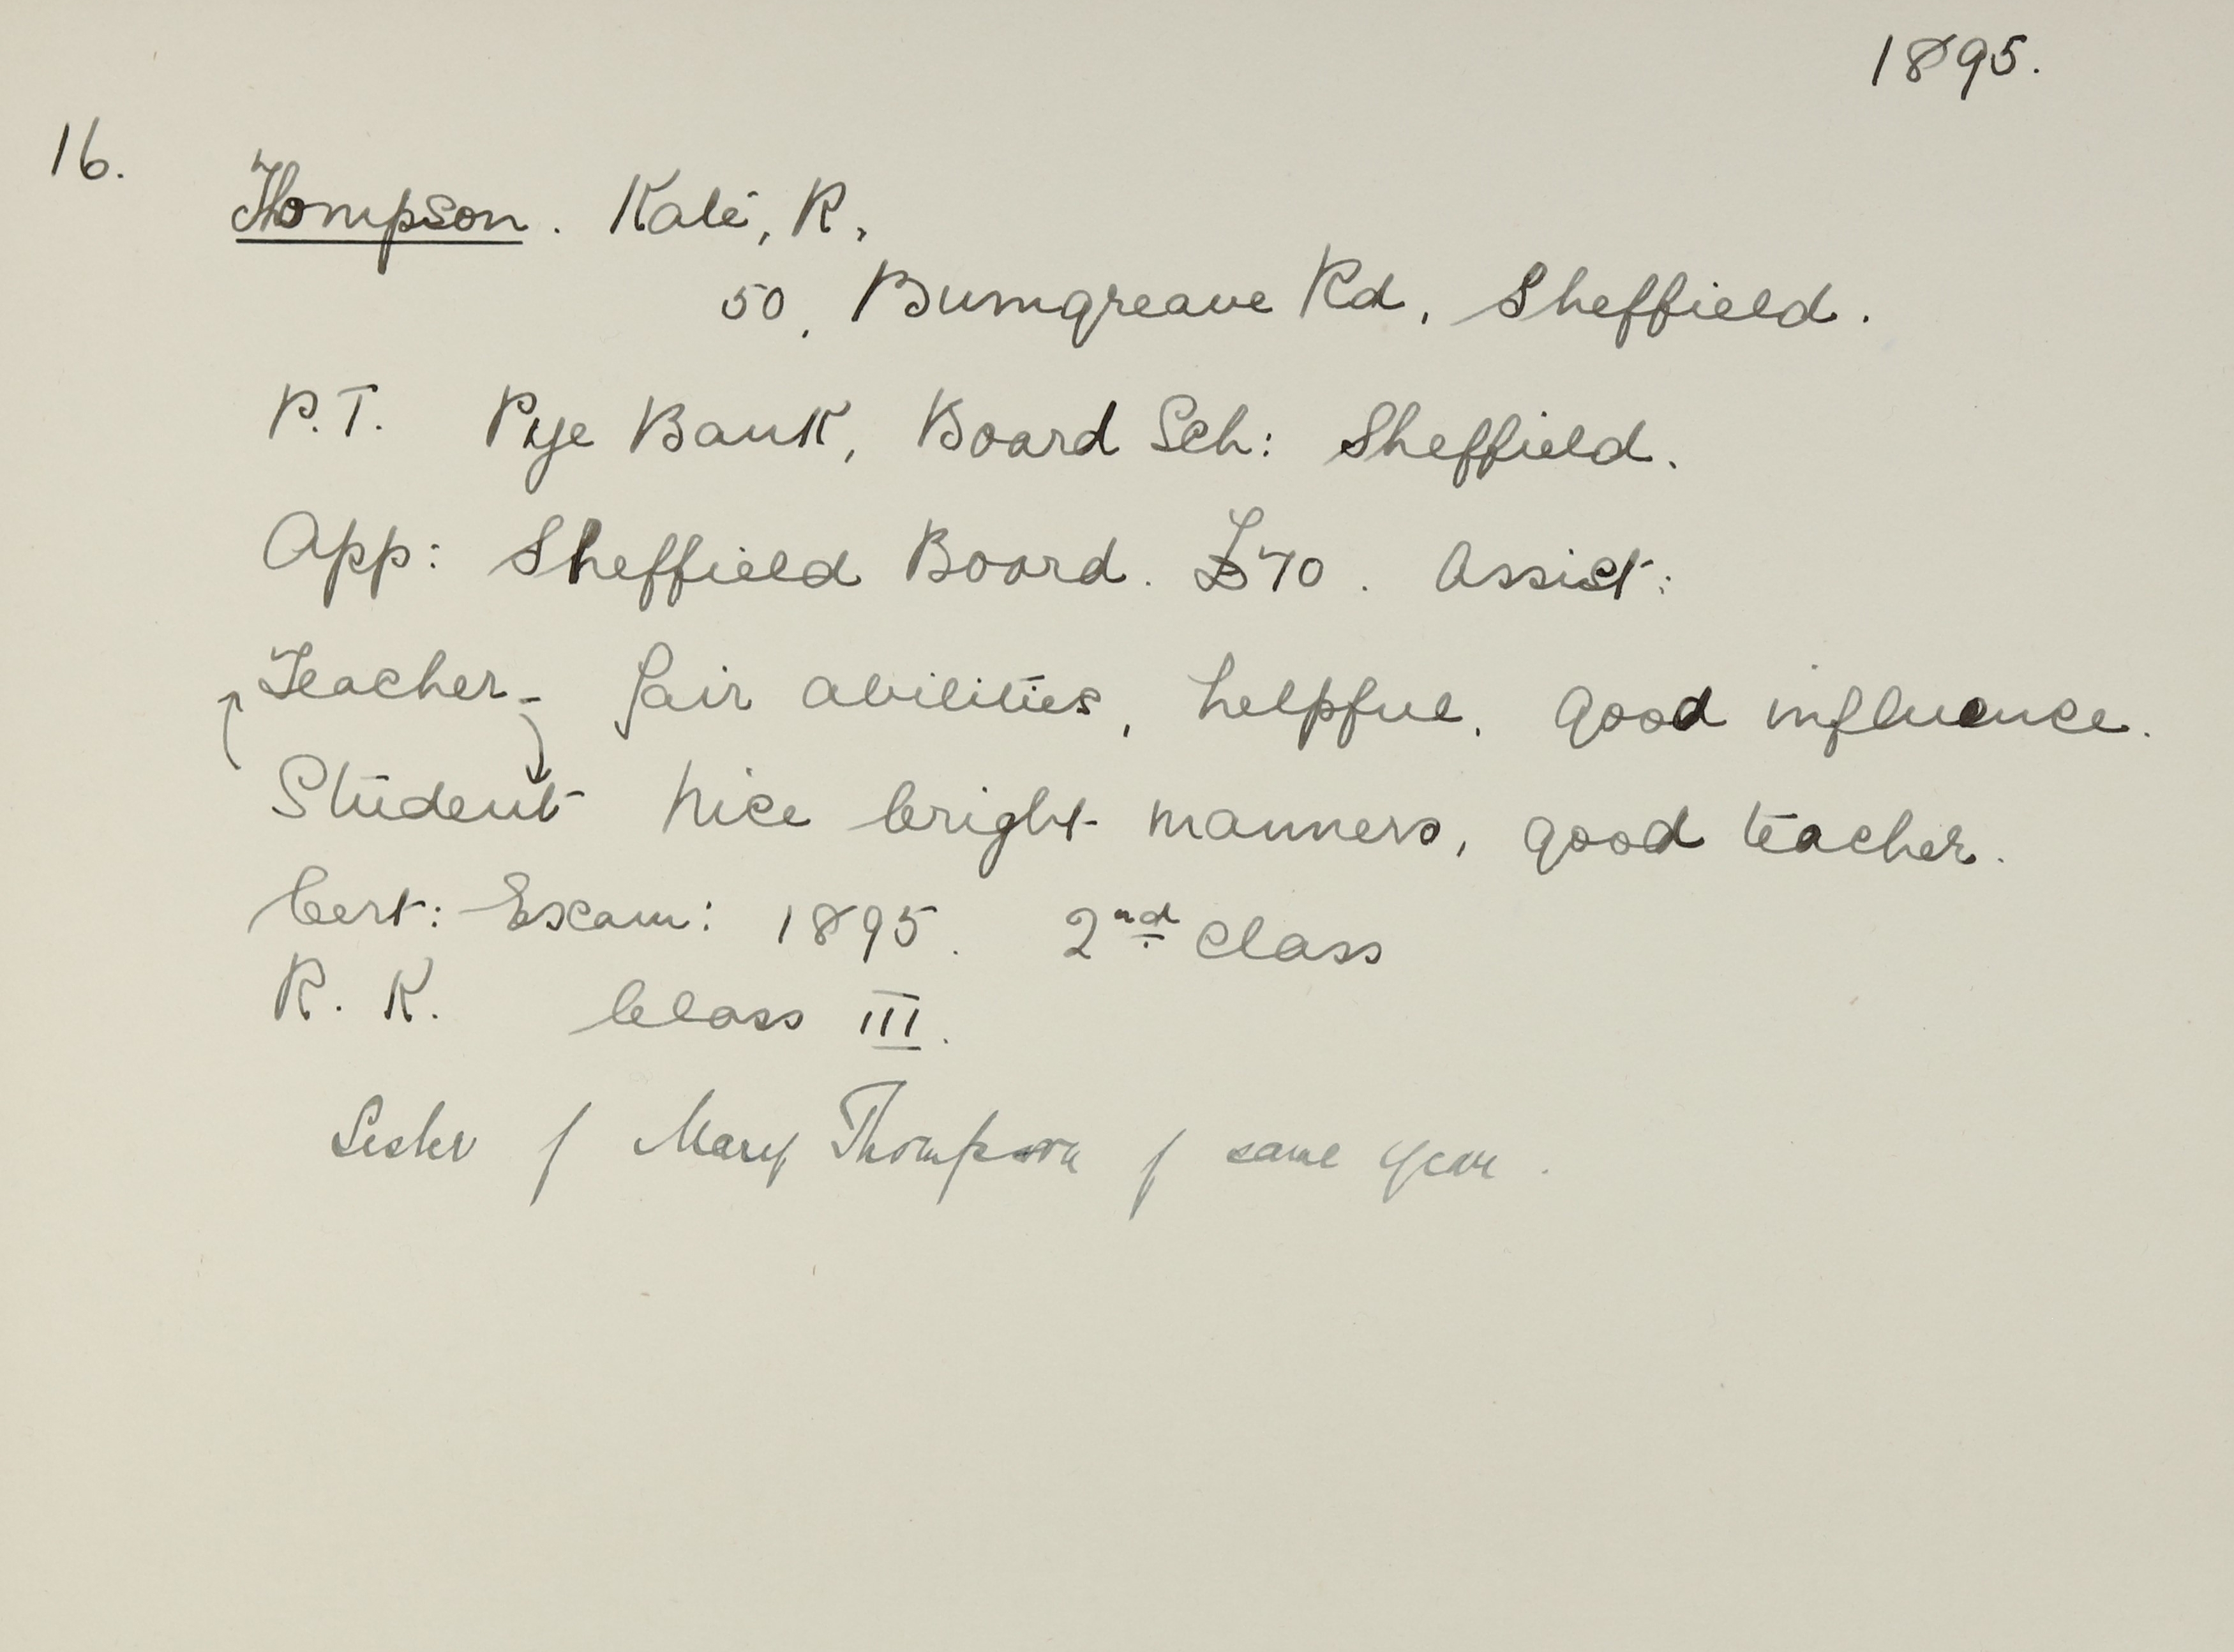 1895.
16.
Thompson. Kate, R,
50, Burngreave Rd, Sheffield.
P.T. Pye Bank, Board Sch: Sheffield.
App: Sheffield Board. £70. Assist:
Teacher - fair abilities, helpful, good influence.
Student nice bright manners, good teacher.
Cert: Exam: 1895. 2nd Class
R. K. Class III.
Sister of Mary Thompson of same year.